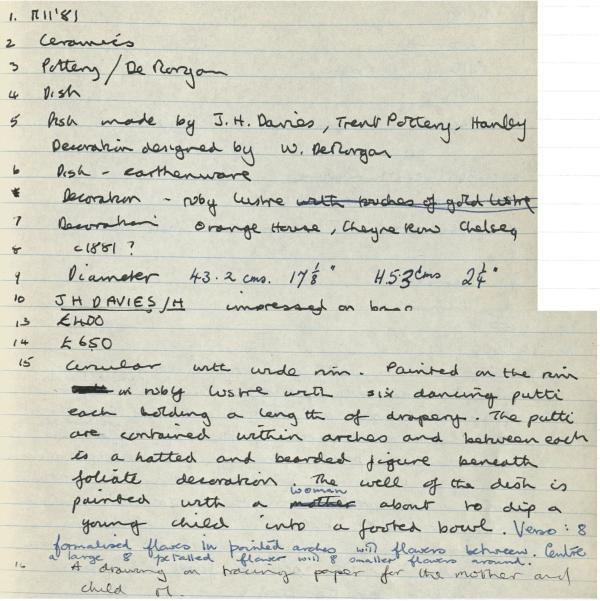 1. R11'81
2 Ceramics
3 Pottery / De Morgan
4 Dish
5 Dish made by J.H. Davies, Trent Pottery. Hanley
Decoration designed by W. De Morgan
6 Dish - earthenware
Decoration - ruby lustre with touches of gold lustre
7 Decoration Orange House, Cheyne Row Chelsea
8 c1881 ?
9 Diameter 43.2 cms. 17 1/8 " H. 5.3 cms 2 1/4 "
10 J H DAVIES/H impressed on base
13 £400
14 £650
15 Circular with wide rim. Painted on the rim
in ruby lustre with six dancing putti
each holding a length of drapery. The putti
are contained within arches and between each
is a hatted and bearded figure beneath
foliate decoration. The well of the dish is
painted with a mother woman about to dip a
young child into a footed bowl. Verso: 8
formalised flowers in pointed arches with flowers between. Centre
a large 8 petalled flower with 8 smaller flowers around.
16 A drawing on tracing paper for the mother and
child